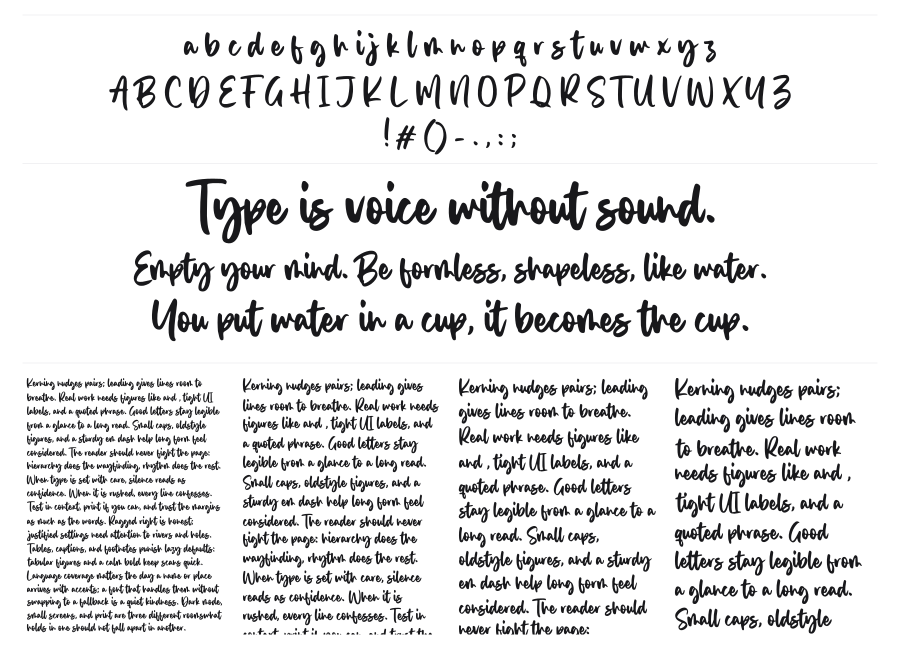 a b c d e f g h i j k l m n o p q r s t u v w x y z
A B C D E F G H I J K L M N O P Q R S T U V W X Y Z
! # ( ) - . , : ;
Type is voice without sound.
Empty your mind. Be formless, shapeless, like water.
You put water in a cup, it becomes the cup.
Kerning nudges pairs; leading gives lines room to
breathe. Real work needs figures like and , tight UI
labels, and a quoted phrase. Good letters stay legible
from a glance to a long read. Small caps, oldstyle
figures, and a sturdy em dash help long form feel
considered. The reader should never fight the page:
hierarchy does the wayfinding, rhythm does the rest.
When type is set with care, silence reads as
confidence. When it is rushed, every line confesses.
Test in context, print if you can, and trust the margins
as much as the words. Ragged right is honest;
justified settings need attention to rivers and holes.
Tables, captions, and footnotes punish lazy defaults:
tabular figures and a calm bold keep scans quick.
Language coverage matters the day a name or place
arrives with accents; a font that handles them without
swapping to a fallback is a quiet kindness. Dark mode,
small screens, and print are three different roomswhat
holds in one should not fall apart in another.
Kerning nudges pairs; leading gives
lines room to breathe. Real work needs
figures like and , tight UI labels, and
a quoted phrase. Good letters stay
legible from a glance to a long read.
Small caps, oldstyle figures, and a
sturdy em dash help long form feel
considered. The reader should never
fight the page: hierarchy does the
wayfinding, rhythm does the rest.
When type is set with care, silence
reads as confidence. When it is
rushed, every line confesses. Test in
context, print if you can, and trust the
Kerning nudges pairs; leading
gives lines room to breathe.
Real work needs figures like
and , tight UI labels, and a
quoted phrase. Good letters
stay legible from a glance to a
long read. Small caps,
oldstyle figures, and a sturdy
em dash help long form feel
considered. The reader should
never fight the page:
Kerning nudges pairs;
leading gives lines room
to breathe. Real work
needs figures like and ,
tight UI labels, and a
quoted phrase. Good
letters stay legible from
a glance to a long read.
Small caps, oldstyle